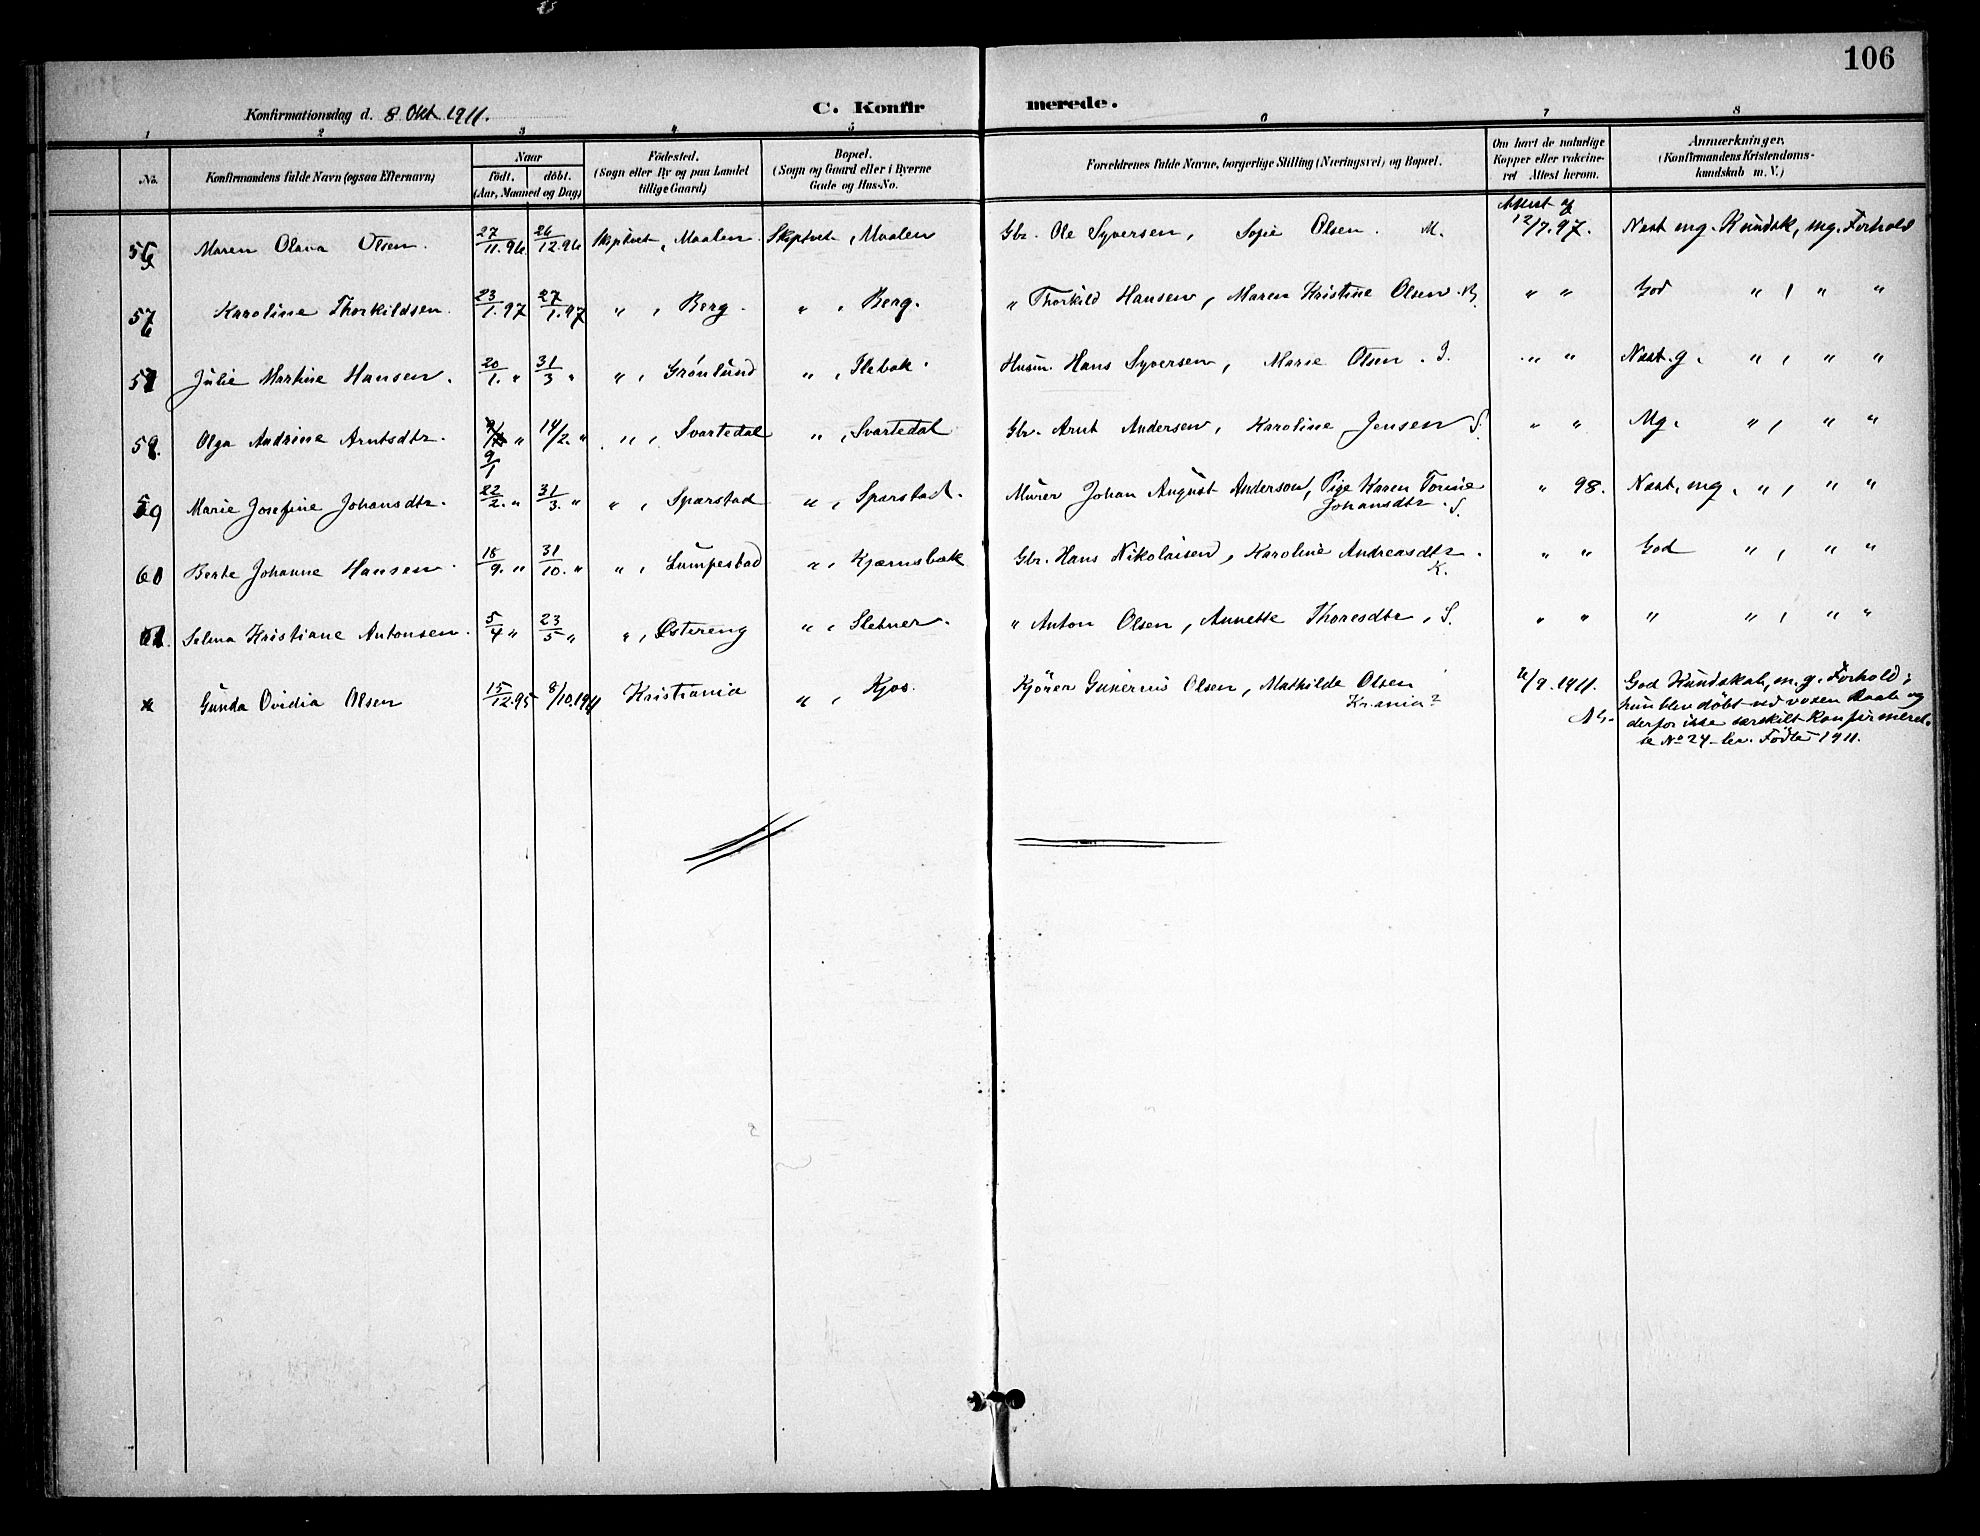 106
Konfirmationsdag d. 8 Okt. 1911.
C. Konfir merede.
1 2 3 4 5 6 7 8
No.
Konfirmandens fulde Navn (ogsaa Efternavn)
Naar
födt. döbt.
(Aar, Maaned og Dag)
Födested.
(Sogn eller By og paa Landet
tillige Gaard)
Bopæl.
(Sogn og Gaard eller i Byerne
Gade og Hus-No.
Forældrenes fulde Navne, borgerlige Stilling (Næringsvei) og Bopæl.
Om havt de naturlige
Kopper eller vakcine-
ret Attest herom.
Anmærkninger.
(Konfirmandens Kristendoms-
kundskab m. V.)
Attest af
Maren Olava Olsen. 27/11.96 26/12.96 Skiptvet, Maalen. Skiptvet, Maalen Gbr. Ole Syversen, Sofie Olsen. M. 12/7.97. Nast mg. Kundsk, mg. Forhold
Karoline Thorkildsen. 23/1.97 27/1.97 " , Berg. " , Berg. " Thorkild Hansen, Maren Kristine Olsen. B. " " God " , " "
Julie Martine Hansen. 20/1. " 31/3 " " , Grönlund " , Ilebak. Husm. Hans Syversen, Marie Olsen. I. " " Nast. g. " , " "
Olga Andrine Arntsdtr. 9/1 " 14/2. " " , Svartedal " , Svartedal Gbr. Arnt Andersen, Karoline Jensen S. " " Mg. " , " "
59 Marie Josefine Johansdtr. 22/2. " 31/3. " " , Sparstad " , Sparstad. Murer Johan August Anderson, Pige Karen Torine " 98. Nast. mg. " , " "
Johansdtr. S.
60 Berte Johanne Hansen. 18/9. " 31/10. " " , Lumpestad " , Kjærnsbæk Gbr. Hans Nikolaisen, Karoline Andreasdtr. " " God " , " "
K.
Selma Kristiane Antonsen. 5/4 " 23/5 " " , Østereng " , Sletner. " Anton Olsen, Annette Thoresdtr, S. " " " " , " "
Gunda Ovidia Olsen 15/12.95 8/10.1911 Kristiania " , Kjos. Kjörer Gunerius Olsen, Mathilde Olsen /9.1911. God Kundskab, m. g. Forhold;
Kr.ania?
hun blev döbt ved voxen Daab og
derfor ikke særskilt konfirmeret.
se No 24 Födte 1911.